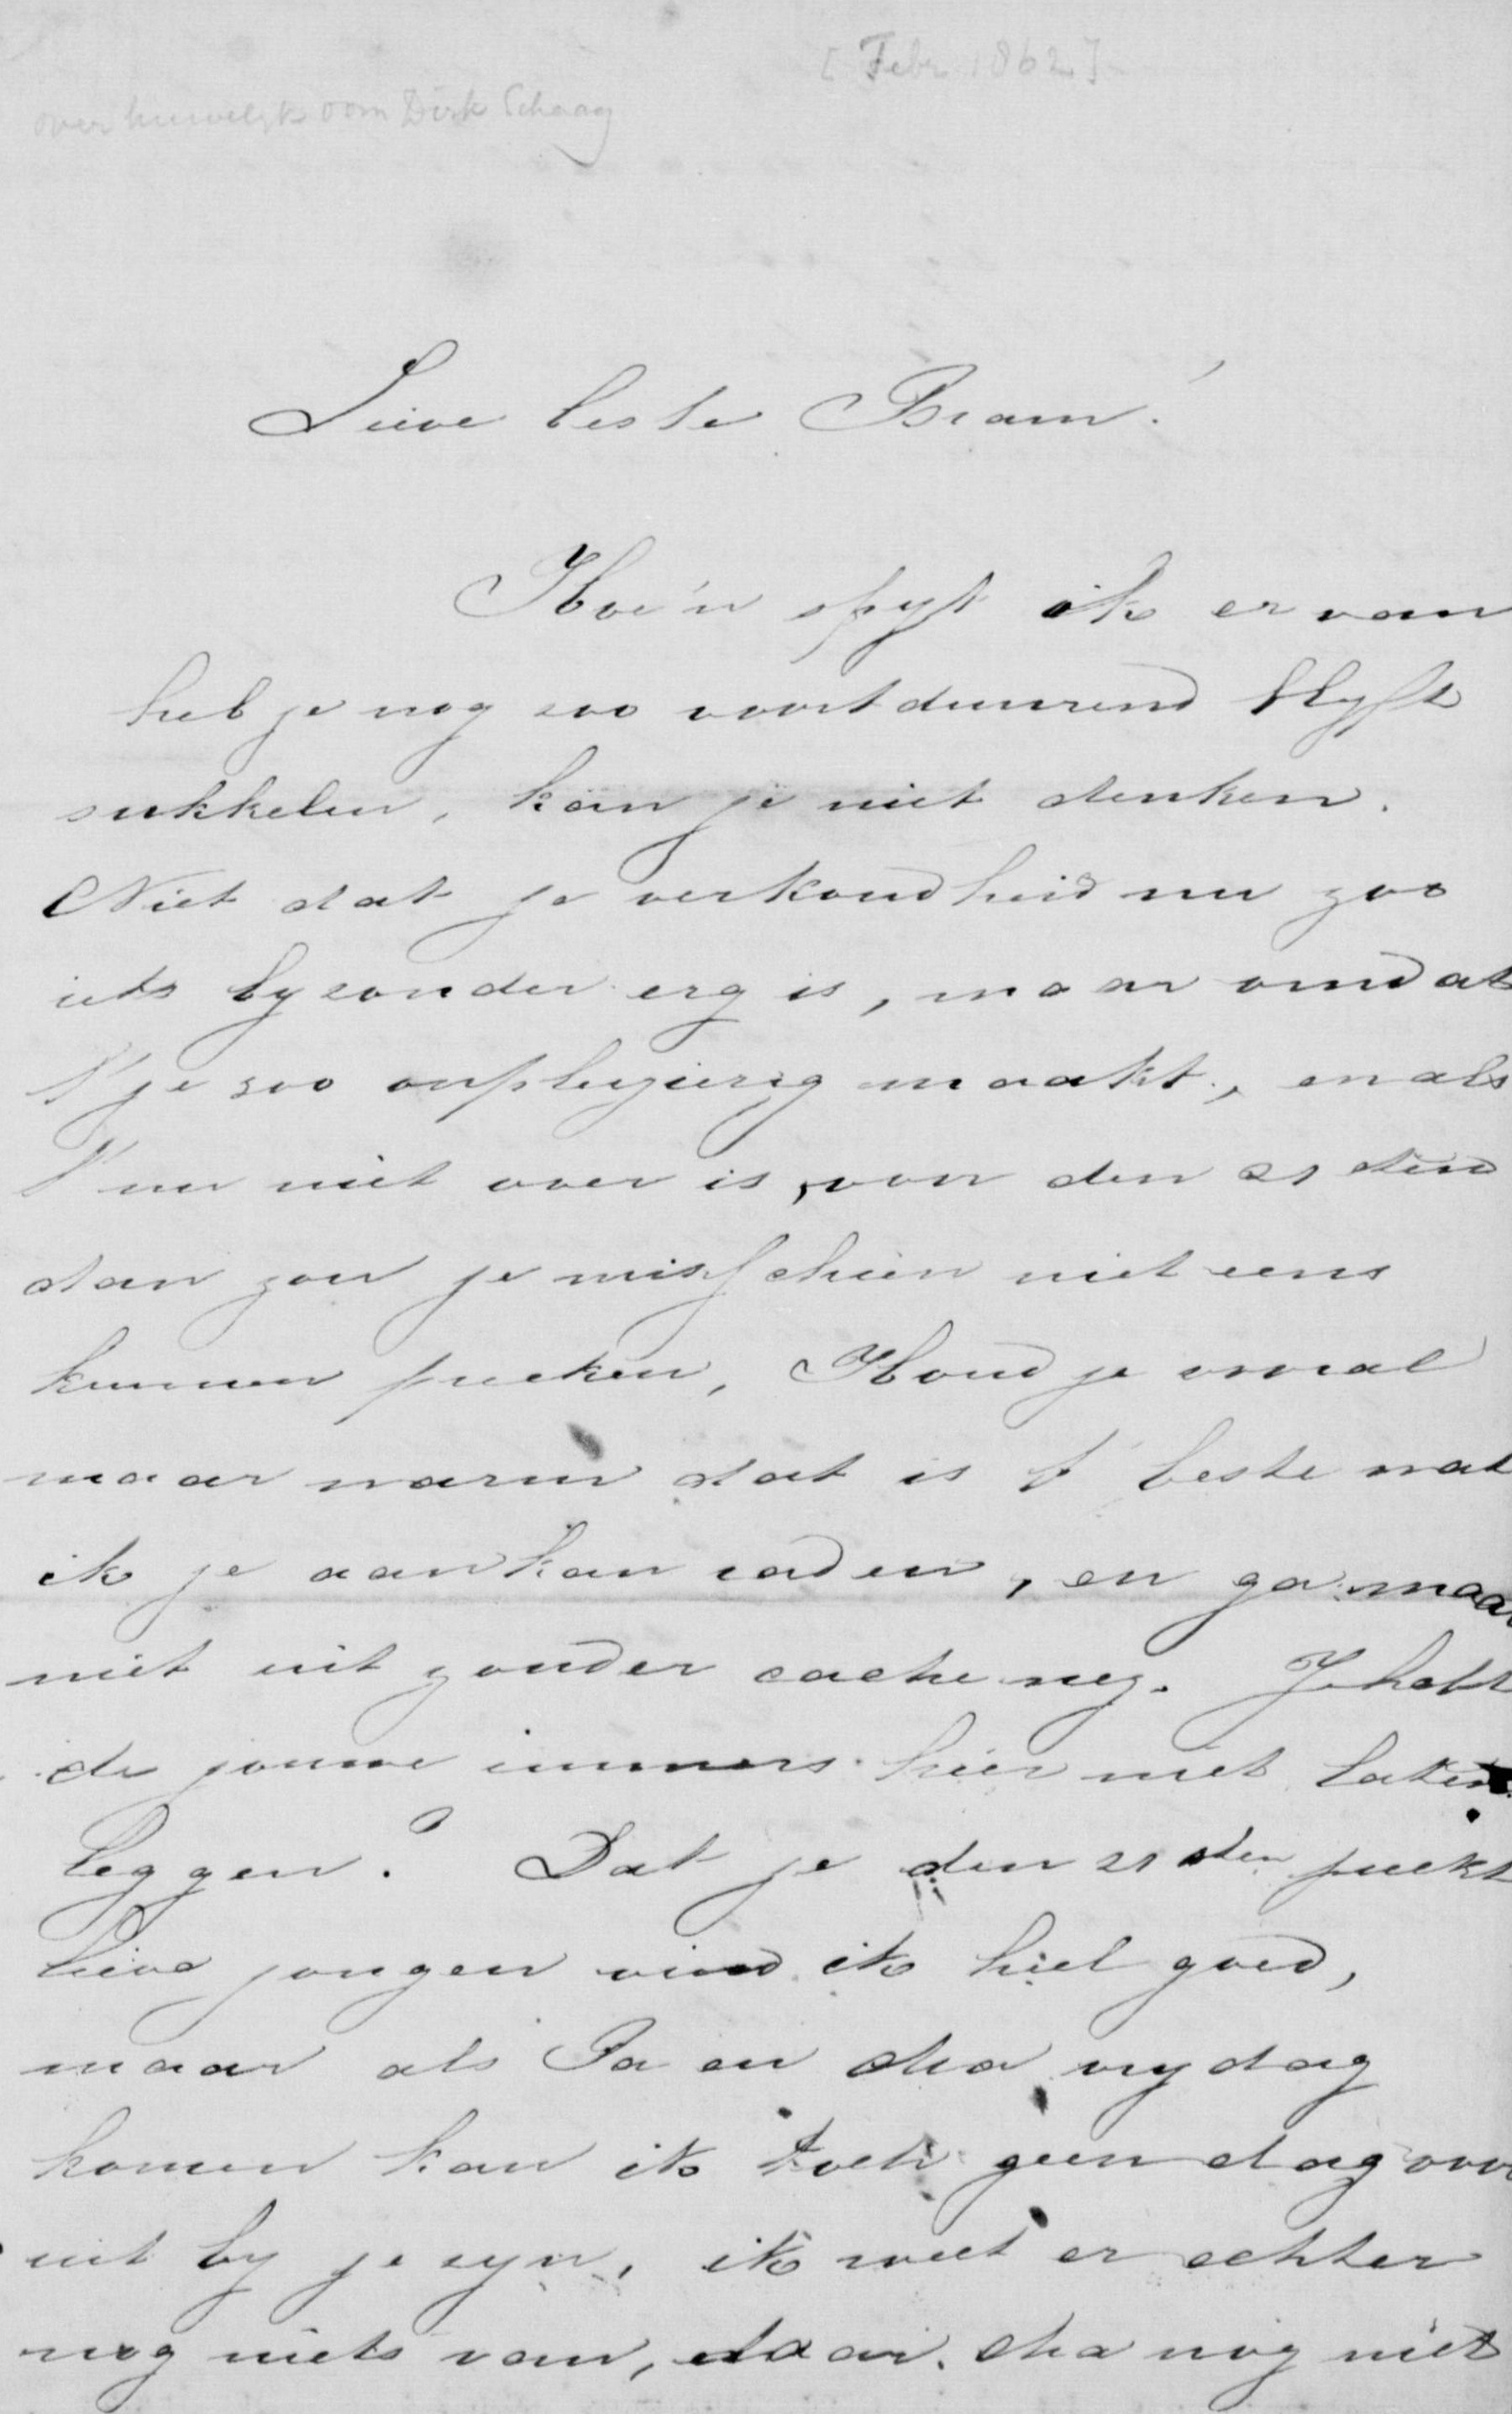 [Febr 1862]
over huwelijk oom Dirk Schaag
Lieve beste Bram!
Hoe'n spyt ik er van
heb je nog zoo voortdurend blyft
sukkelen, kan je niet denken.
Niet dat je verkoudheid nu zoo
iets byzonder erg is, maar omdat
't je zoo onplezierig maakt, en als
't nu niet over is, voor den 21sten
dan zou je misschien niet eens
kunnen preeken, Houd je vooral
maar warm dat is 't beste wat
ik je aan kan raden, en ga maar
niet uit zonder cache nez. Je hebt
de jouwe immers hier niet laten
leggen? Dat je den 21sten preekt
lieve jongen vind ik heel goed,
maar als Pa en Ma vrydag
komen kan ik toch geen dag voor
uit by je zyn, ik weet er echter
nog niets van, daar Ma nog niet